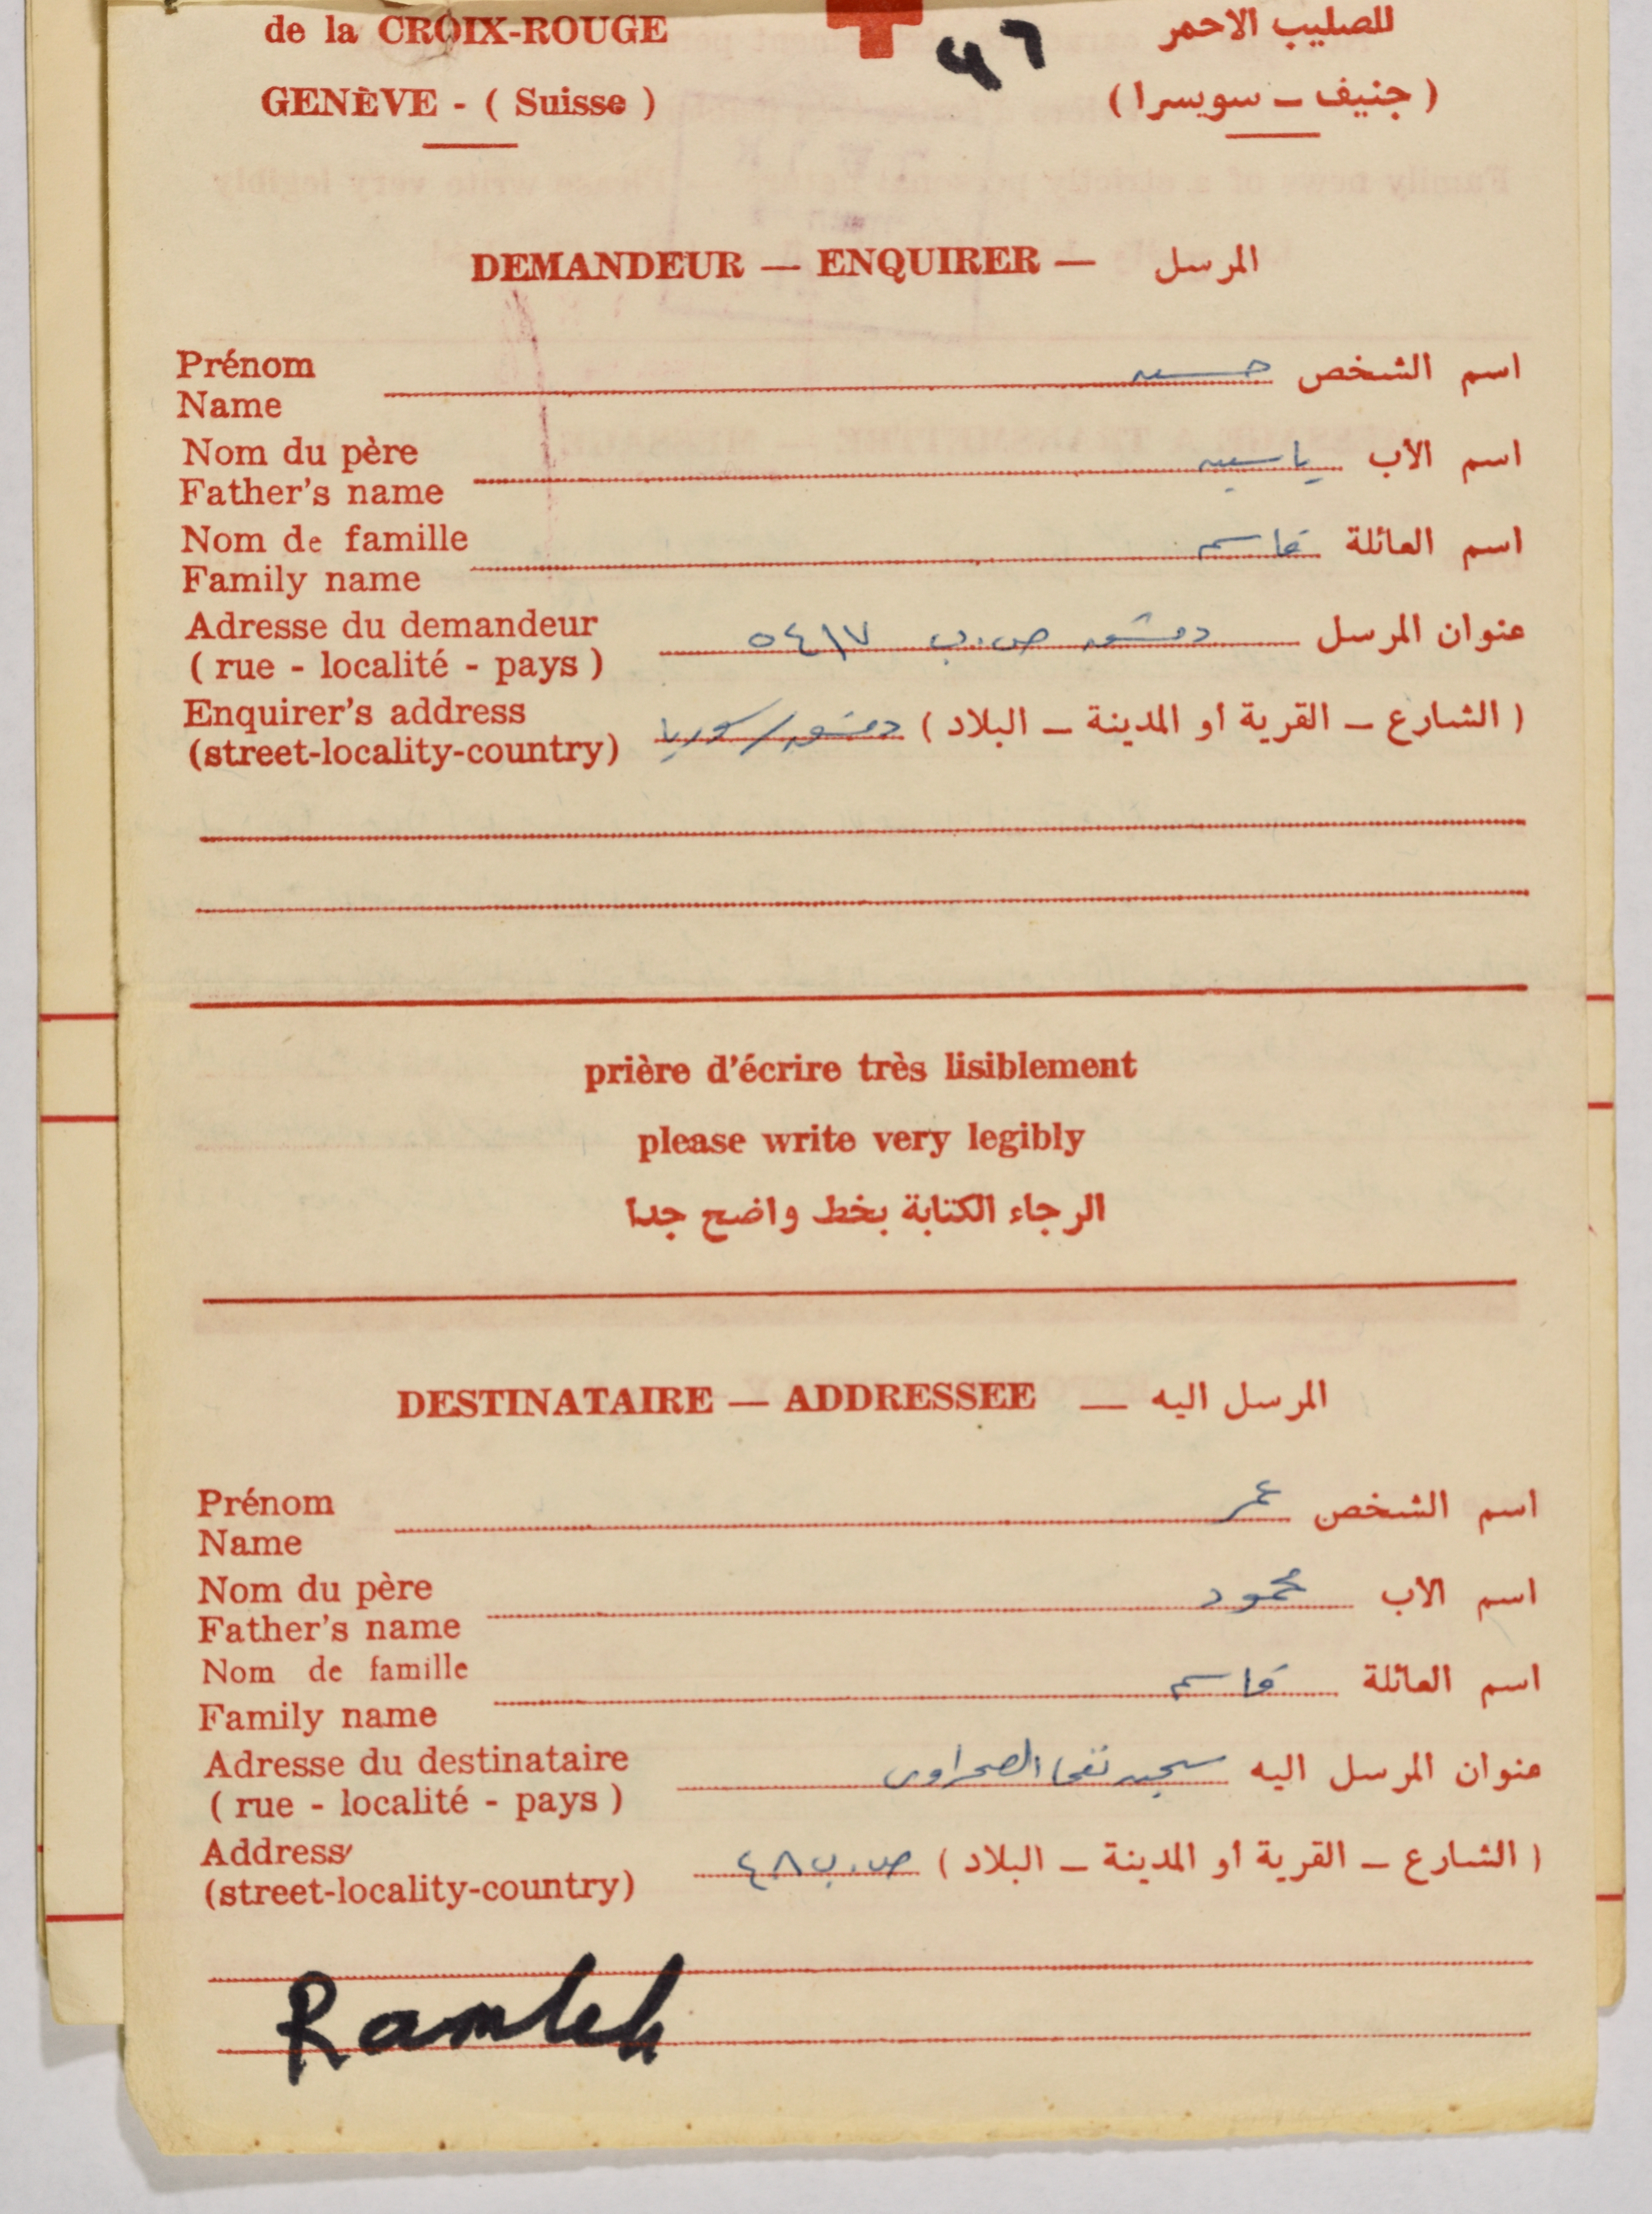 de la CROIX-ROUGE
للصليب الاحمر
46
GENÈVE - ( Suisse )
( جنيف – سويسرا )
DEMANDEUR — ENQUIRER — المرسل
Prénom
Name
اسم الشخص حسين
Nom du père
Father's name
اسم الاب ياسين
Nom de famille
Family name
اسم العائلة قاسم
Adresse du demandeur
( rue - localité - pays )
عنوان المرسل دمشق ص.ب ٥٤١٧
Enquirer's address
(street-locality-country)
( الشارع – القرية او المدينة – البلاد ) دمشق / سوريا
prière d'écrire très lisiblement
please write very legibly
الرجاء الكتابة بخط واضح جدا
DESTINATAIRE — ADDRESSEE — المرسل اليه
Prénom
Name
اسم الشخص عمر
Nom du père
Father's name
اسم الاب محمود
Nom de famille
Family name
اسم العائلة قاسم
Adresse du destinataire
( rue - localité - pays )
عنوان المرسل اليه سجن نفحا الصحراوي
Address
(street-locality-country)
( الشارع – القرية او المدينة – البلاد ) ص.ب ٤٨
Ramleh